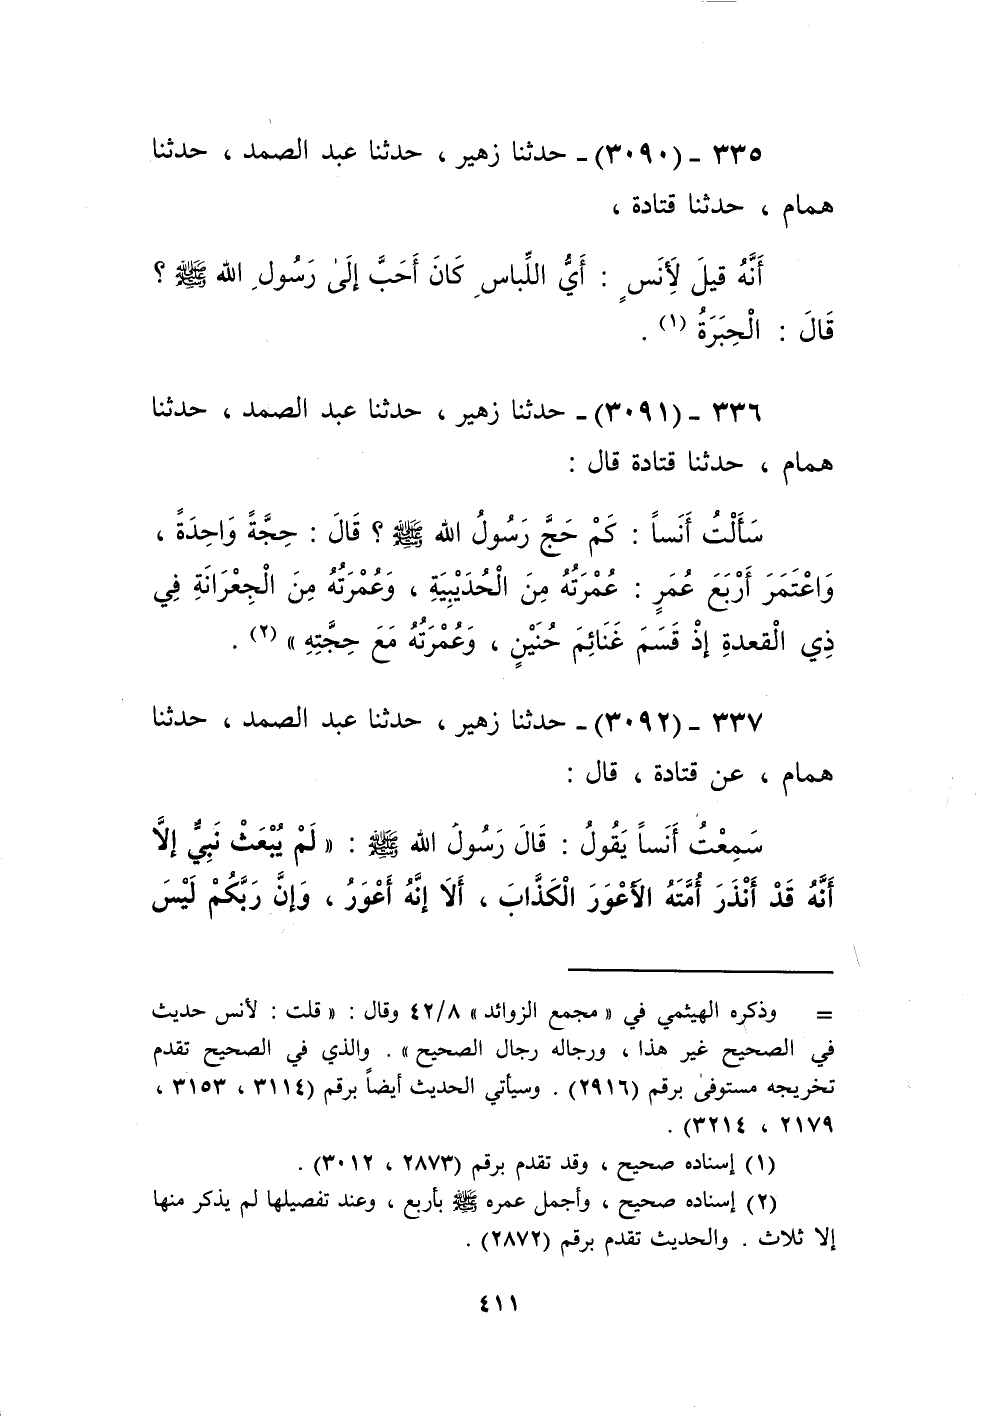 ٣٣٥ ـ (٣٠٩٠) ـ حدثنا زهير ، حدثنا عبد الصمد ، حدثنا
همام ، حدثنا قتادة ،
أَنَّهُ قيلَ لِأَنَسٍ : أَيُّ اللِّباسِ كَانَ أَحَبَّ إلَىٰ رَسُولِ الله ﷺ ؟
قَالَ : الْحِبَرَةُ (١) .
٣٣٦ ـ (٣٠٩١) ـ حدثنا زهير ، حدثنا عبد الصمد ، حدثنا
همام ، حدثنا قتادة قال :
سَأَلْتُ أَنَساً : كَمْ حَجَّ رَسُولُ الله ﷺ ؟ قَالَ : حِجَّةً وَاحِدَةً ،
وَاعْتَمَرَ أَرْبَعَ عُمَرٍ : عُمْرَتُهُ مِنَ الْحُدَيْبِيَةِ ، وَعُمْرَتُهُ مِنَ الْجِعْرَانَةِ فِي
ذِي الْقعدةِ إذْ قَسَمَ غَنَائِمَ حُنَيْنٍ ، وَعُمْرَتُهُ مَعَ حِجَّتِهِ » (٢) .
٣٣٧ ـ (٣٠٩٢) ـ حدثنا زهير ، حدثنا عبد الصمد ، حدثنا
همام ، عن قتادة ، قال :
سَمِعْتُ أَنَساً يَقُولُ : قَالَ رَسُولُ الله ﷺ : « لَمْ يُبْعَثْ نَبِيٌّ إلَّا
أَنَّهُ قَدْ أَنْذَرَ أُمَّتَهُ الأَعْوَرَ الْكَذَّابَ ، أَلَا إنَّهُ أَعْوَرُ ، وَإنَّ رَبَّكُمْ لَيْسَ
= وذكره الهيثمي في « مجمع الزوائد » ٤٢/٨ وقال : « قلت : لأنس حديث
في الصحيح غير هذا ، ورجاله رجال الصحيح » . والذي في الصحيح تقدم
تخريجه مستوفىٰ برقم (٢٩١٦) . وسيأتي الحديث أيضاً برقم (٣١١٤ ، ٣١٥٣ ،
٢١٧٩ ، ٣٢١٤) .
(١) إسناده صحيح ، وقد تقدم برقم (٢٨٧٣ ، ٣٠١٢) .
(٢) إسناده صحيح ، وأجمل عمره ﷺ بأربع ، وعند تفصيلها لم يذكر منها
إلا ثلاث . والحديث تقدم برقم (٢٨٧٢) .
٤١١